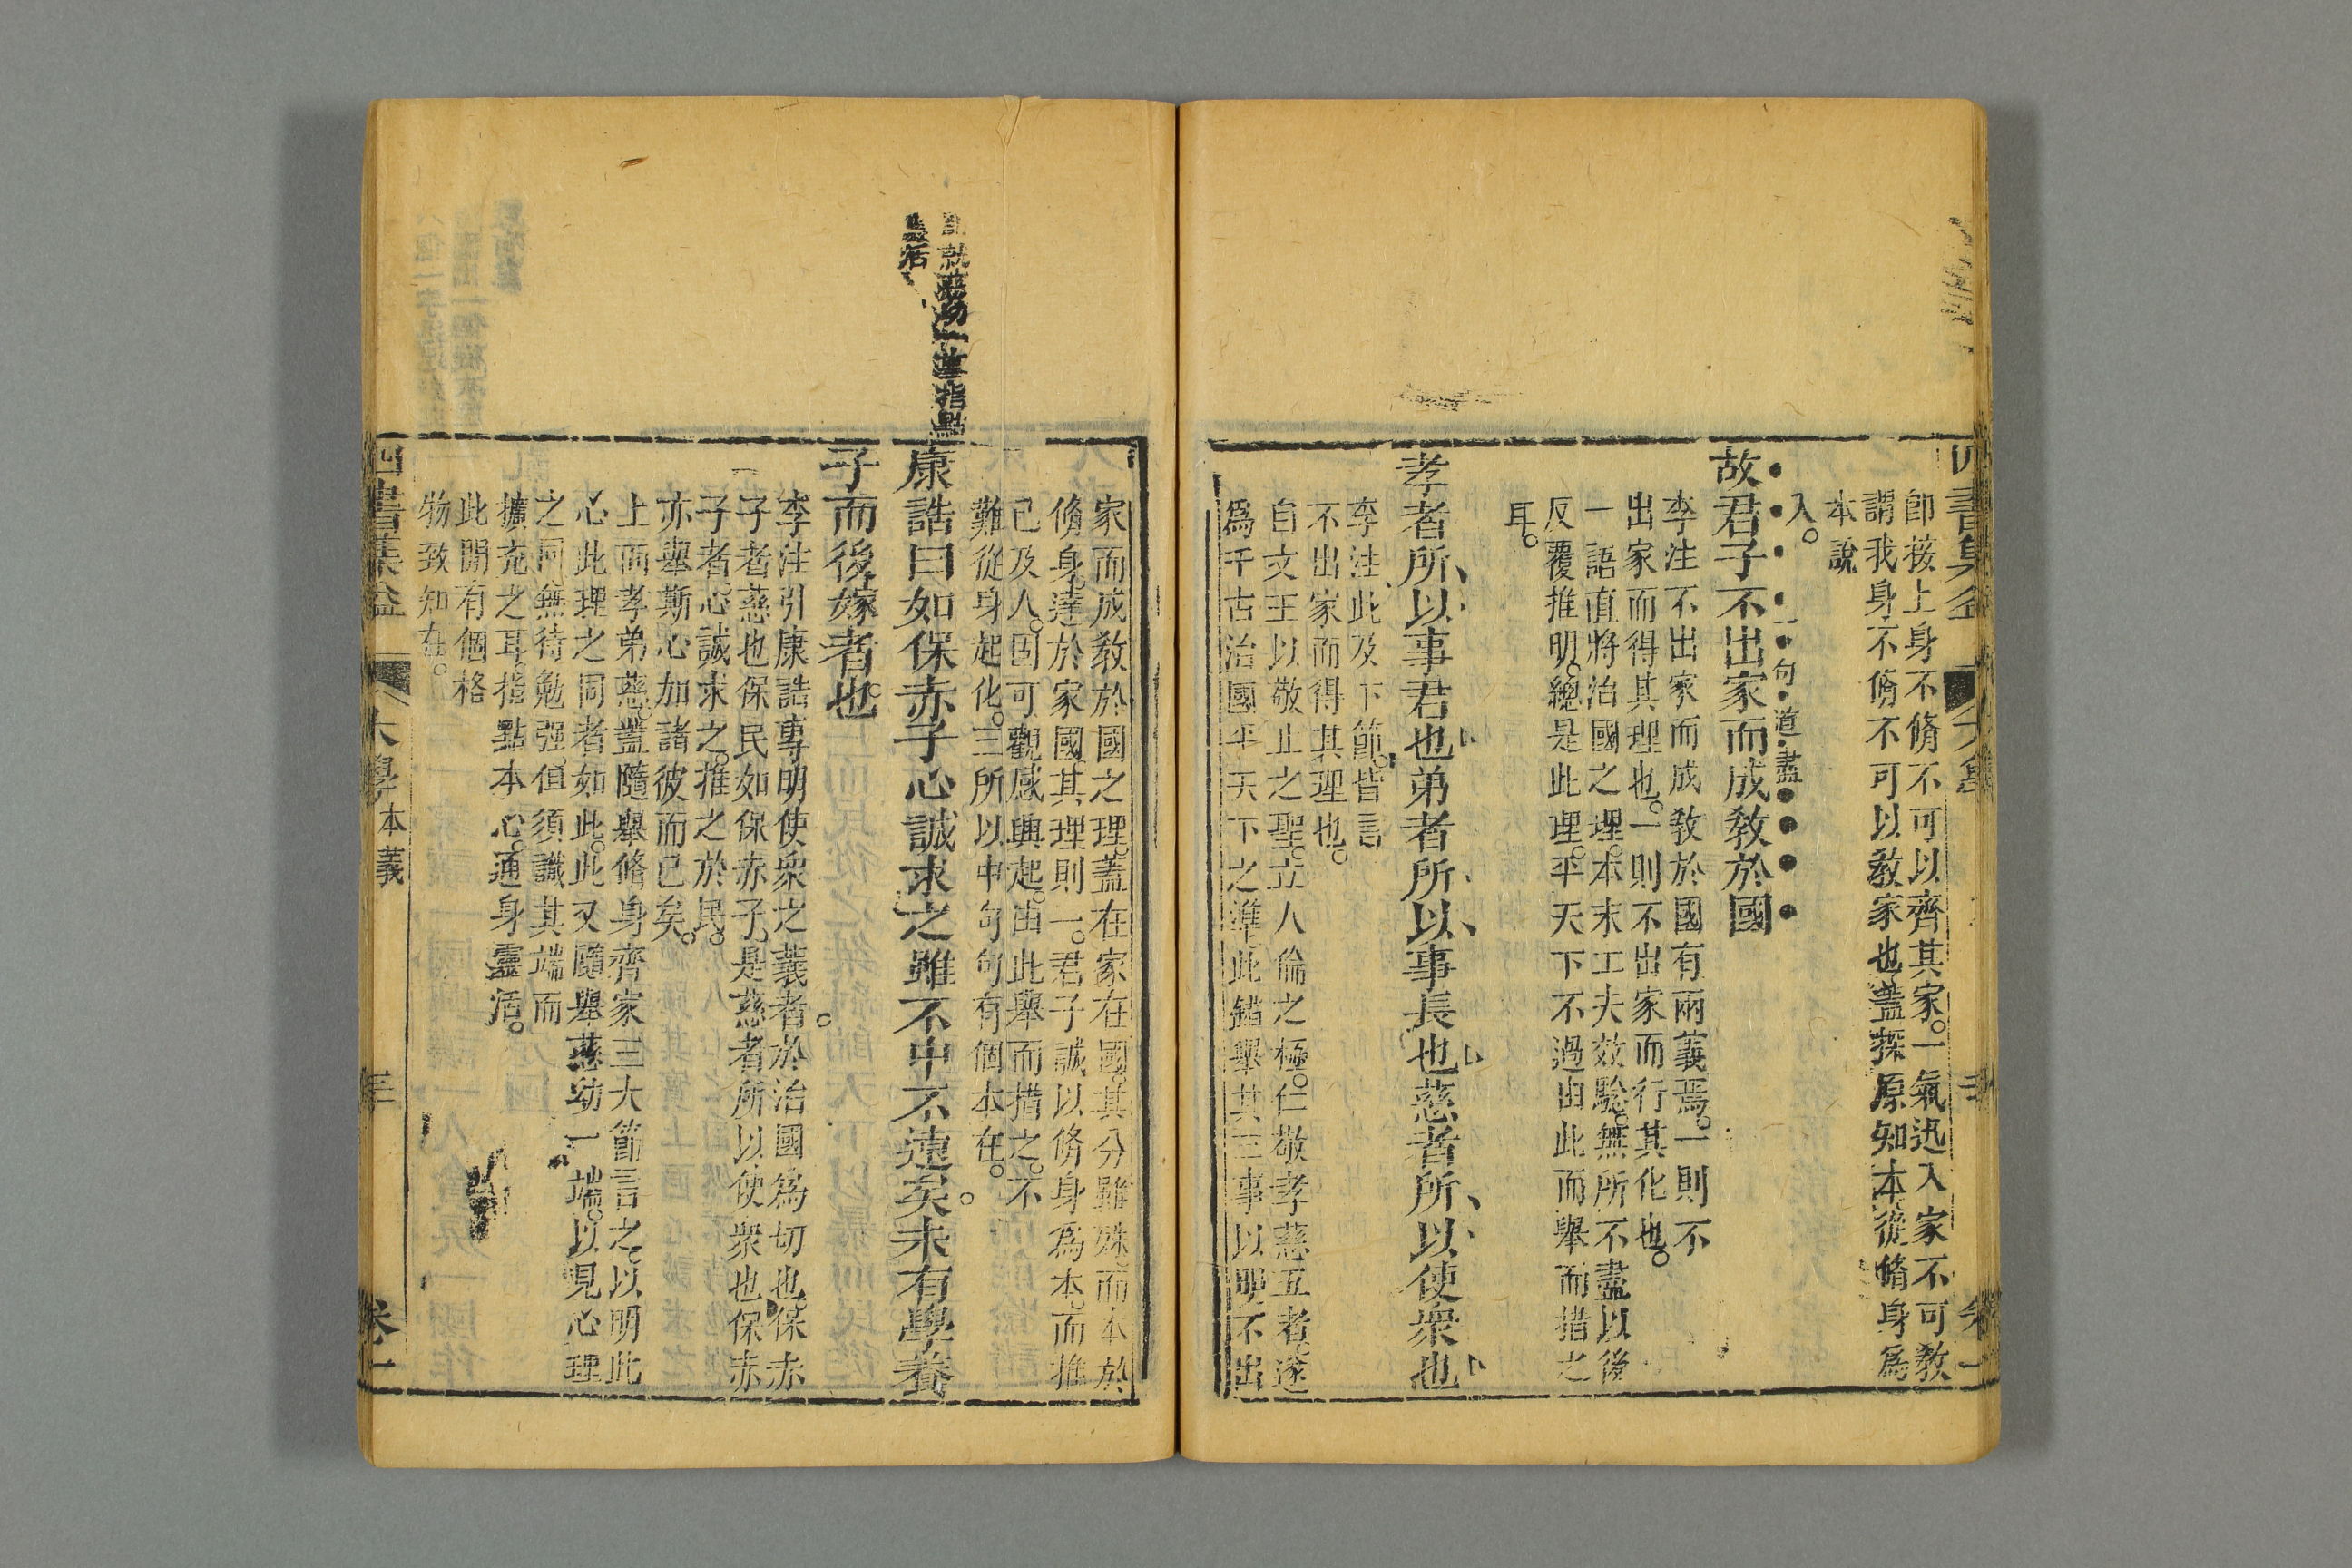 卽接上身不脩不可以齊其家。一氣迅入家不可敎
謂我身不脩不可以敎家也蓋探原知本從脩身爲
本說
入。
一句道盡
故君子不出家而成敎於國
李注不出家而成敎於國有兩義焉。一則不
出家而得其理也。一則不出家而行其化也。
一語直將治國之理。本末工夫效驗。無所不盡以後
反覆推明。總是此理。平天下不過由此而舉而措之
耳。
孝者所以事君也弟者所以事長也慈者所以使衆也
李注此及下節。皆言
不出家而得其理也。
自文王以敬止之聖。立人倫之極。仁敬孝慈五者。遂
爲千古治國平天下之準此錯舉其三事以明不出
家而成敎於國之理。蓋在家在國。其分雖殊。而本於
脩身。達於家國。其理則一。君子誠以脩身爲本。而推
己及人。固可觀感興起。由此舉而措之。不
難從身起化。三所以中句句有個本在。
就慈幼一堂指點
最活
康誥曰如保赤子心誠求之雖不中不遠矣。未有學養
子而後嫁者也。
李注引康誥專明使衆之義者。於治國爲切也。保赤
子者慈也保民如保赤子。是慈者所以使衆也保赤
子者心誠求之。推之於民。
亦舉斯心加諸彼而已矣。
上而孝弟慈。蓋隨舉脩身齊家三大節言之。以明此
心此理之同者如此。此又隨舉慈幼一端。以見心理
之同無待勉强。但須識其端而
擴充之耳。指點本心。通身靈活。
此間有個格
物致知在。
四書集益 大學 本義 卷一